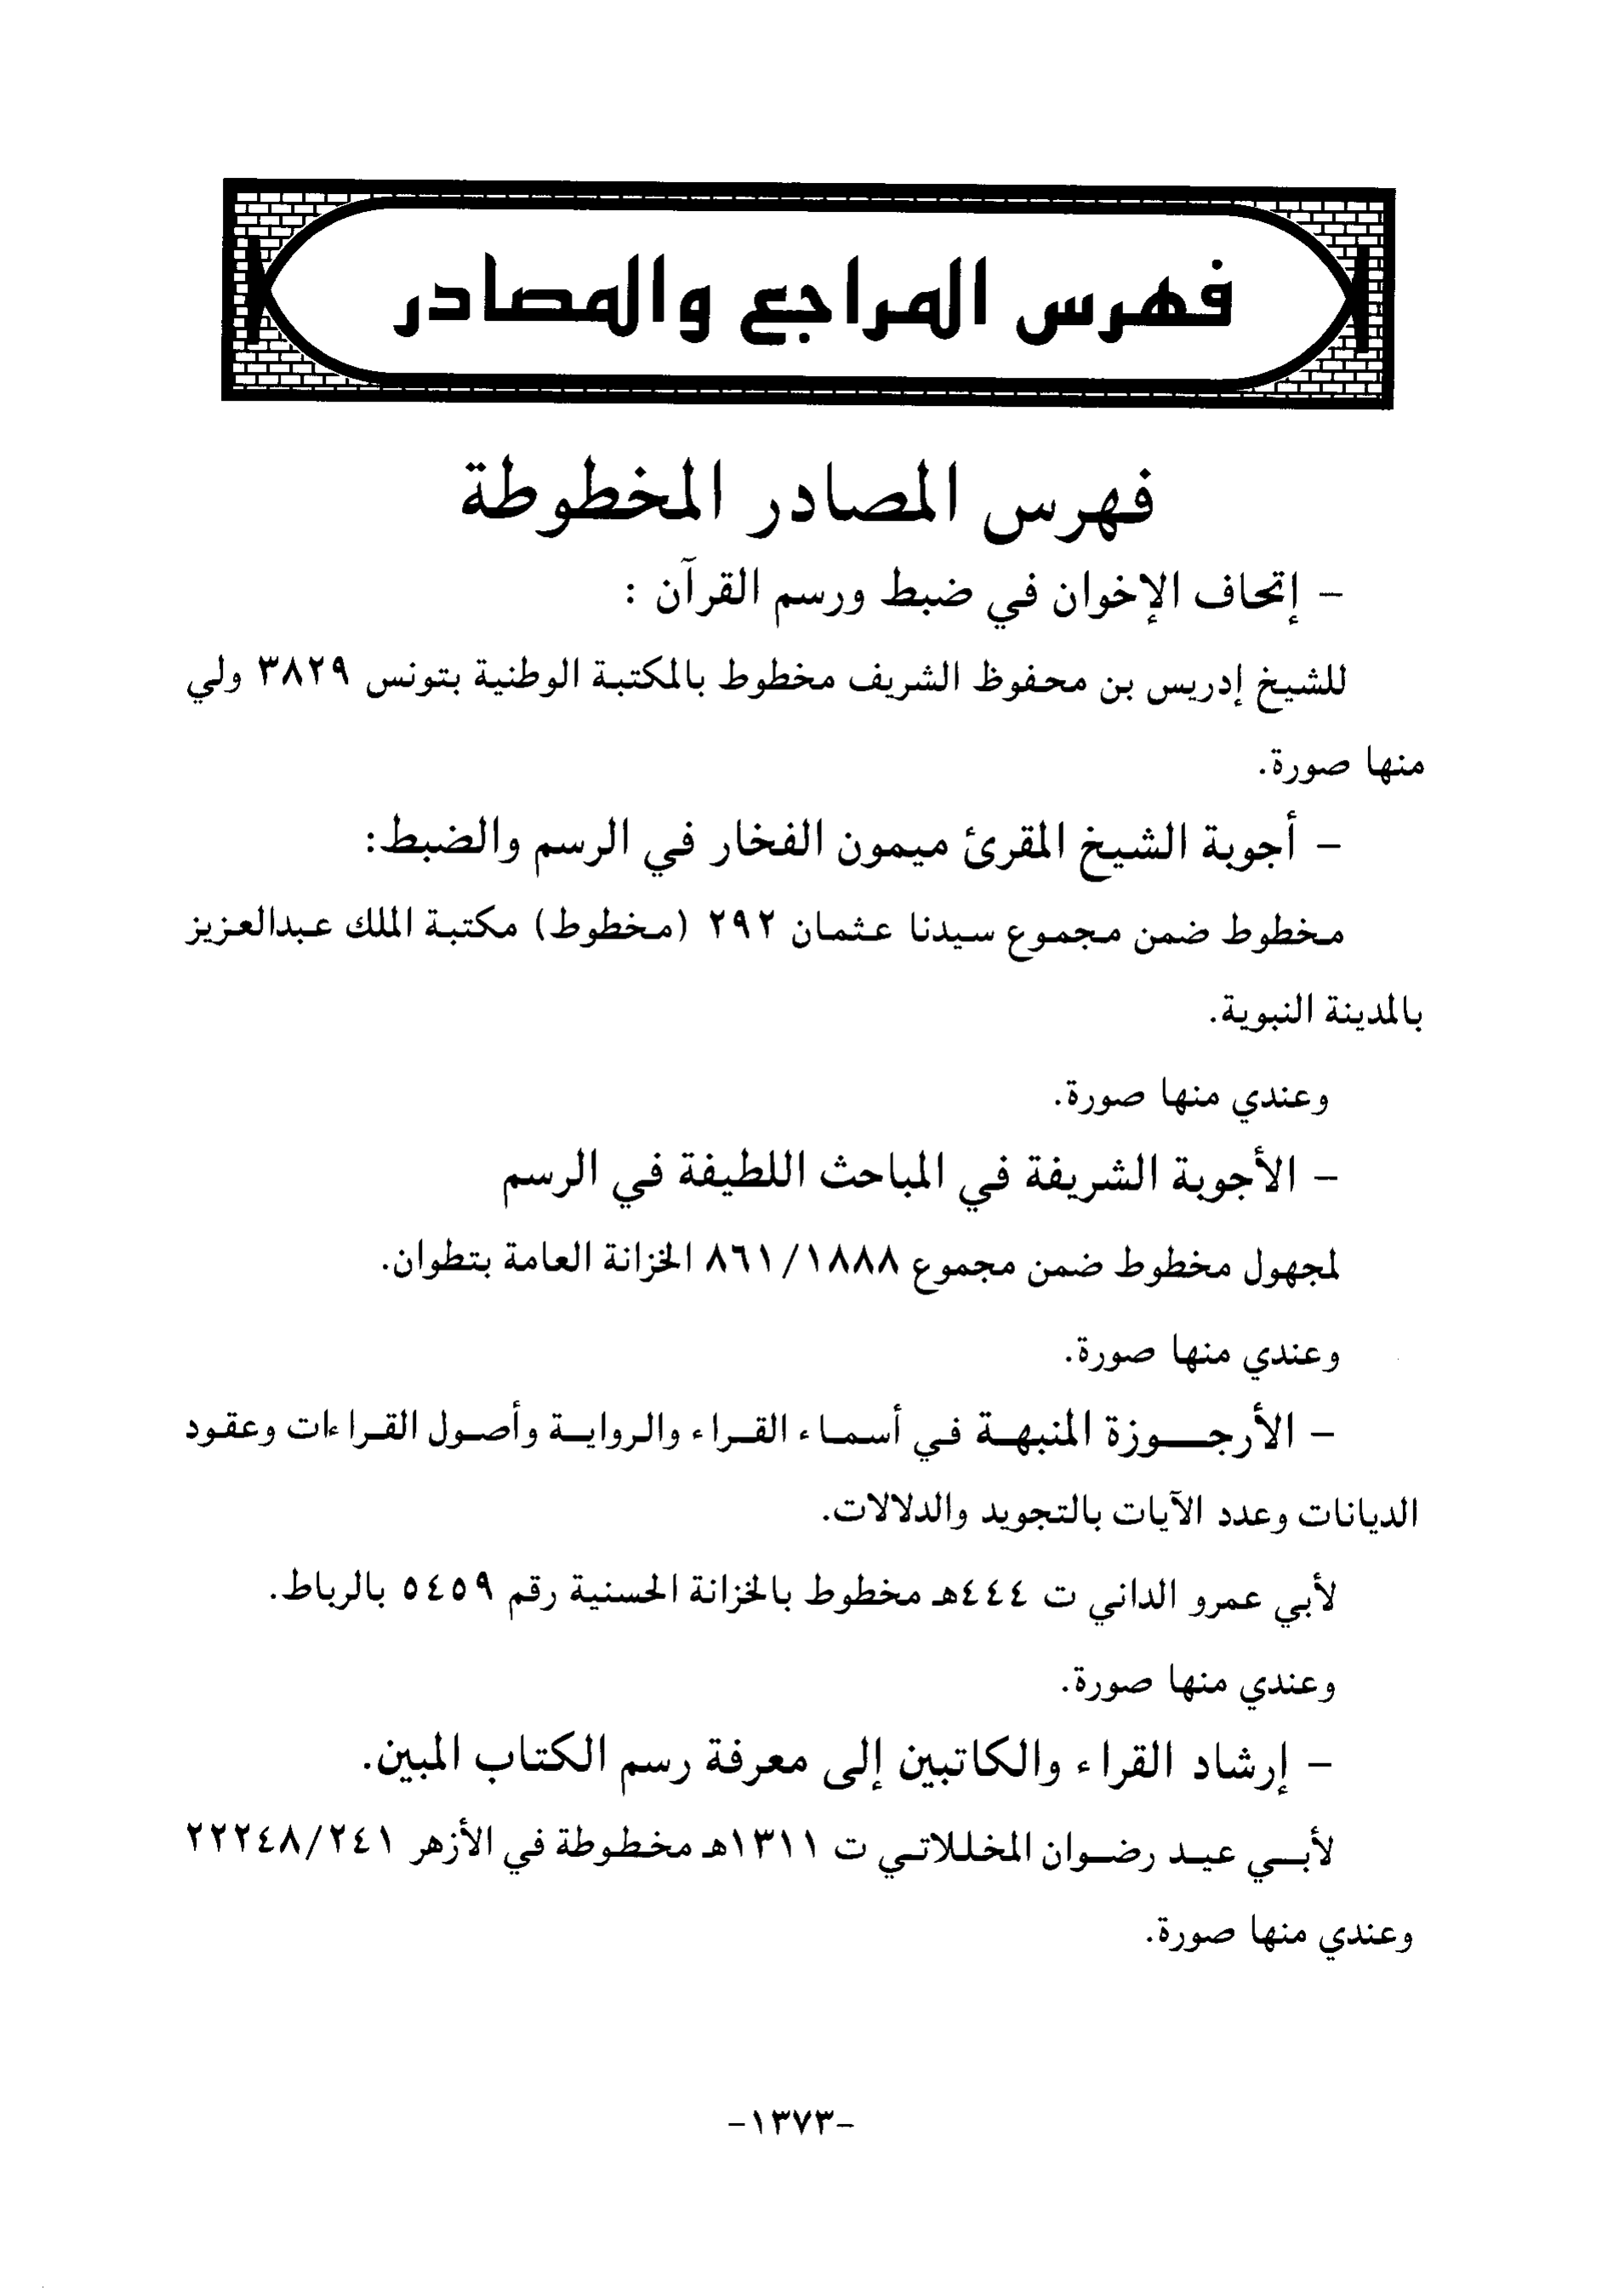 فهرس المراجع والمصادر
فهرس المصادر المخطوطة
– إتحاف الإخوان في ضبط ورسم القرآن :
للشيخ إدريس بن محفوظ الشريف مخطوط بالمكتبة الوطنية بتونس ٣٨٢٩ ولي
منها صورة.
– أجوبة الشيخ المقرئ ميمون الفخار في الرسم والضبط:
مخطوط ضمن مجموع سيدنا عثمان ٢٩٢ (مخطوط) مكتبة الملك عبدالعزيز
بالمدينة النبوية.
وعندي منها صورة.
– الأجوبة الشريفة في المباحث اللطيفة في الرسم
لمجهول مخطوط ضمن مجموع ٨٦١/١٨٨٨ الخزانة العامة بتطوان.
وعندي منها صورة.
– الأرجوزة المنبهة في أسماء القراء والرواية وأصول القراءات وعقود
الديانات وعدد الآيات بالتجويد والدلالات.
لأبي عمرو الداني ت ٤٤٤هـ مخطوط بالخزانة الحسنية رقم ٥٤٥٩ بالرباط.
وعندي منها صورة.
– إرشاد القراء والكاتبين إلى معرفة رسم الكتاب المبين.
لأبي عيد رضوان المخللاتي ت ١٣١١هـ مخطوطة في الأزهر ٢٢٢٤٨/٢٤١
وعندي منها صورة.
-١٣٧٣-